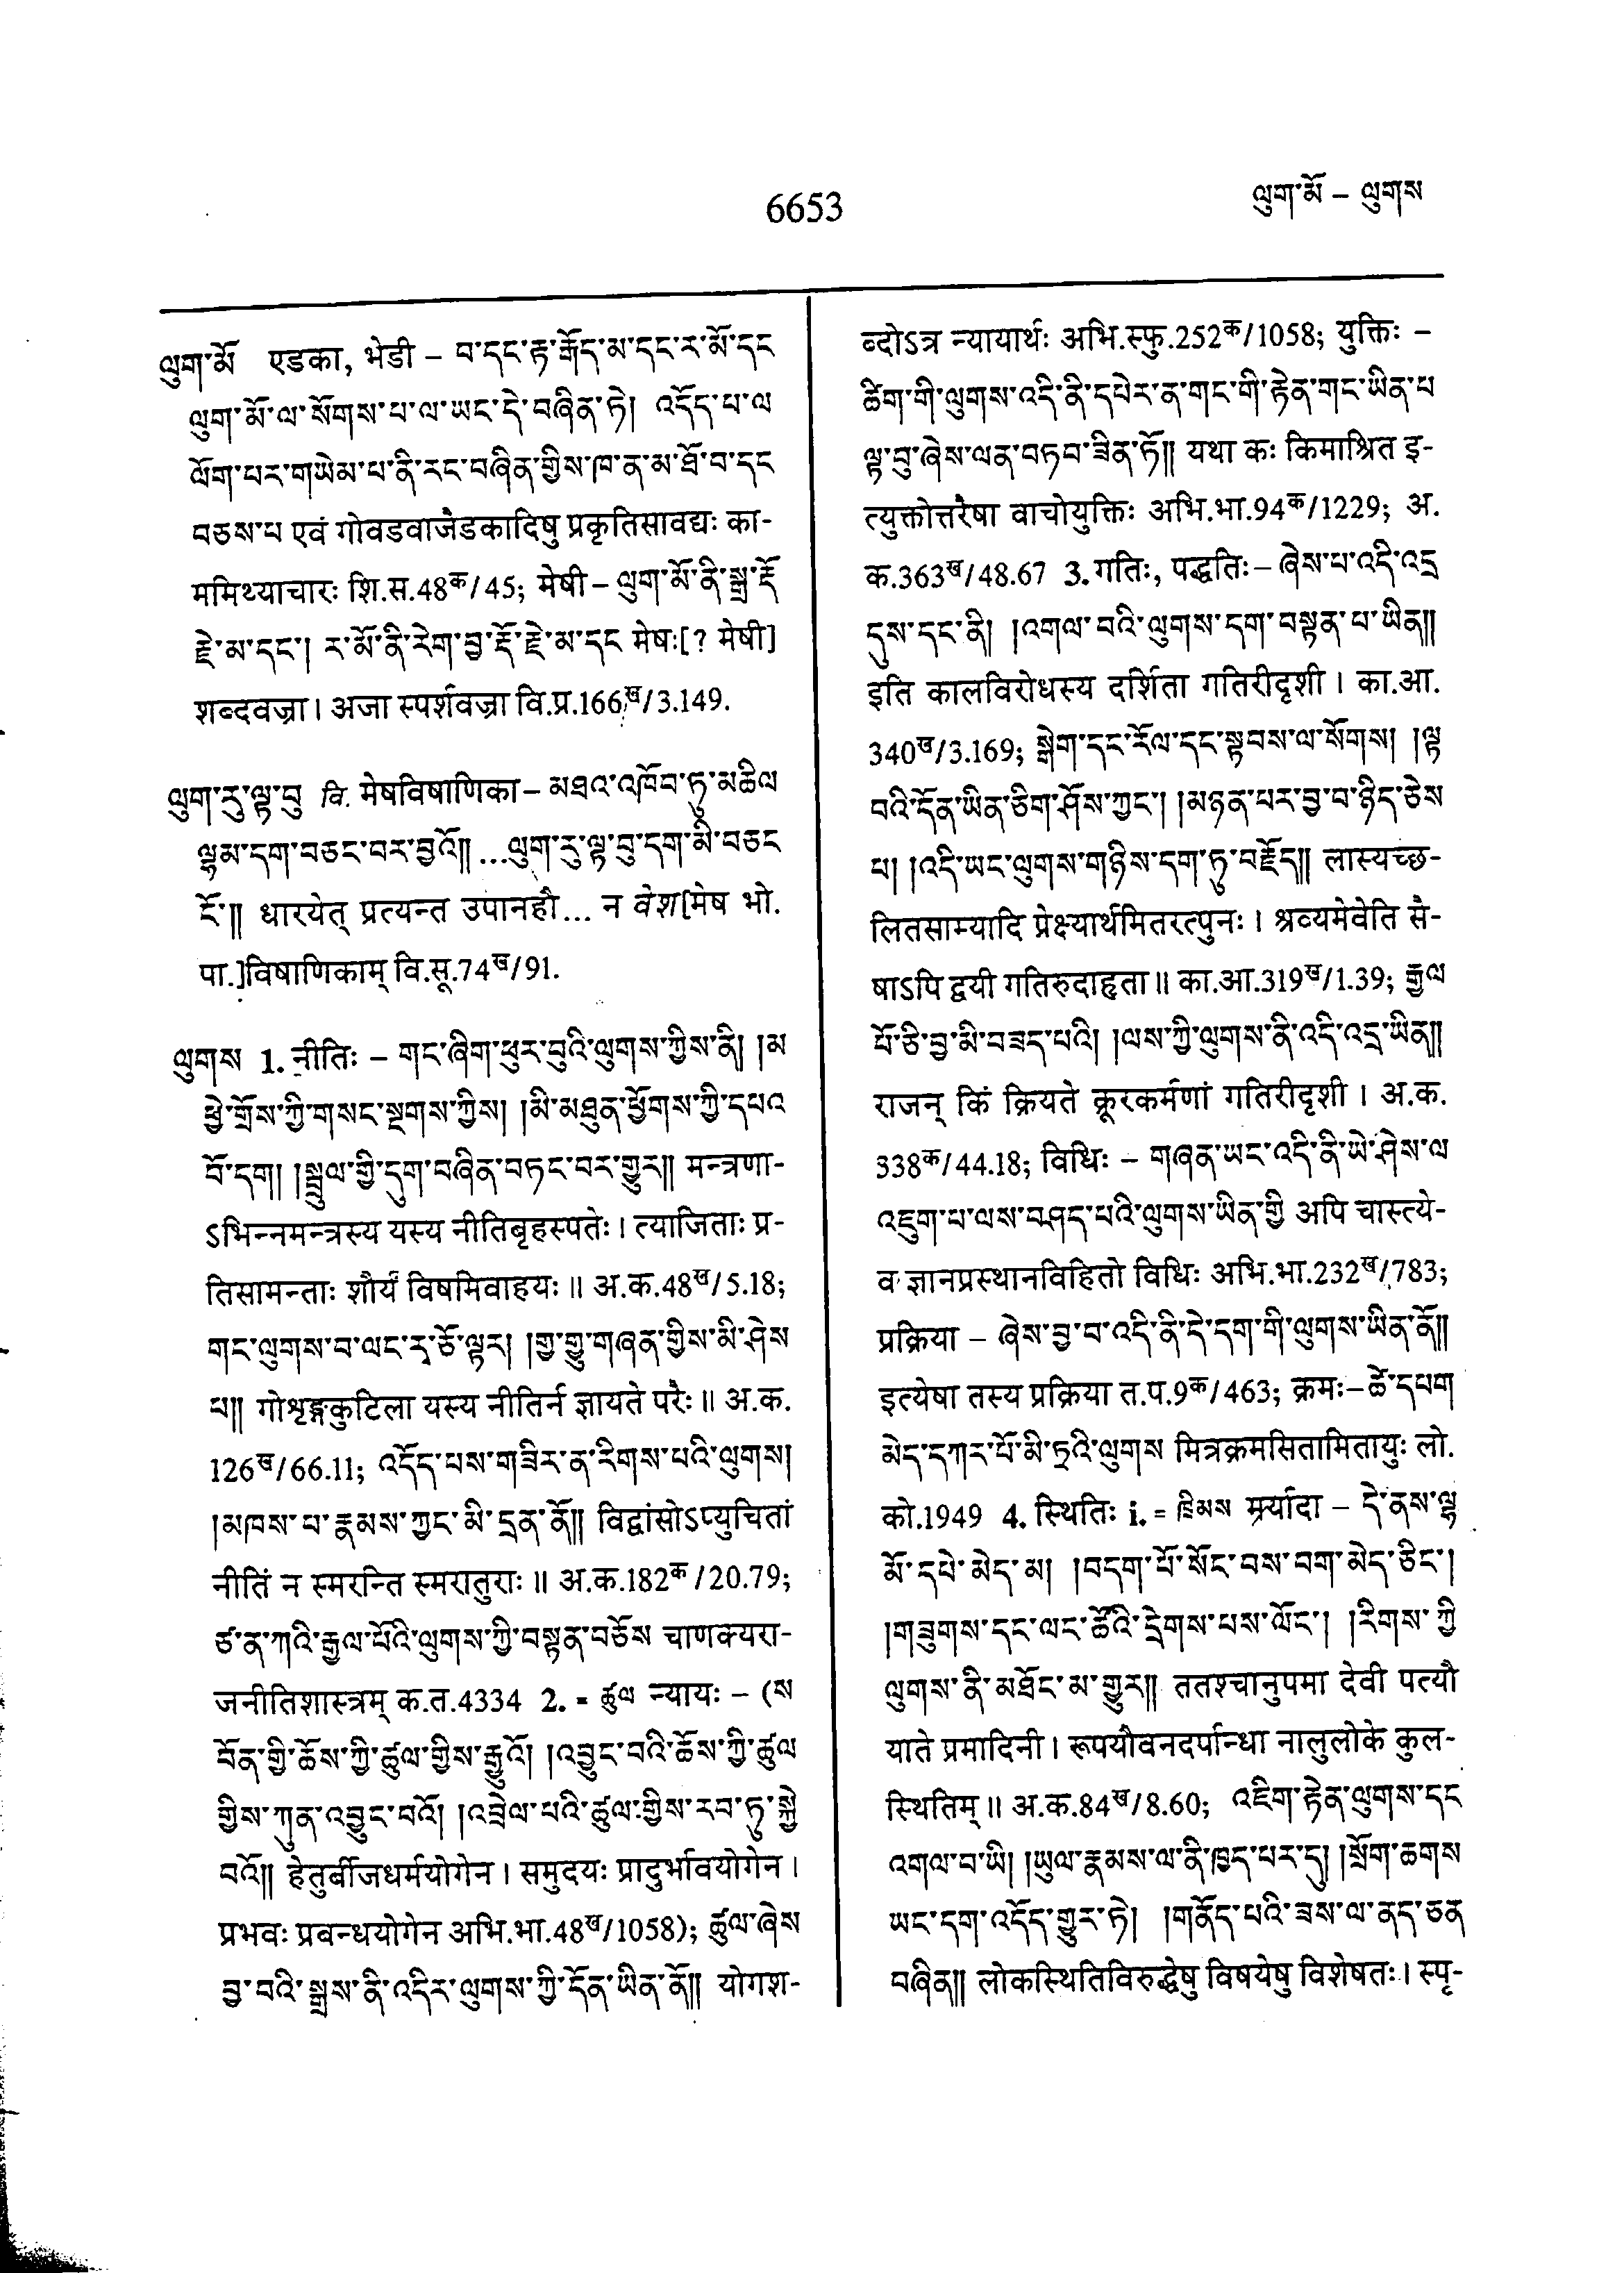 6653
ལུག་མོ – ལུགས
ལུག་མོ एडका, भेडी – བ་དང་རྟ་རྒོད་མ་དང་ར་མོ་དང
ལུག་མོ་ལ་སོགས་པ་ལ་ཡང་དེ་བཞིན་ཏེ། འདོད་པ་ལ
ལོག་པར་གཡེམ་པ་ནི་རང་བཞིན་གྱིས་ཁ་ན་མ་ཐོ་བ་དང
བཅས་པ एवं गोवडवाजैडकादिषु प्रकृतिसावद्यः का-
ममिथ्याचारः शि.स.48क/45; मेषी – ལུག་མོ་ནི་སྒྲ་རྡོ
རྗེ་མ་དང་། ར་མོ་ནི་རེག་བྱ་རྡོ་རྗེ་མ་དང मेषः[? मेषी]
शब्दवज्रा । अजा स्पर्शवज्रा वि.प्र.166ख/3.149.
ལུག་རུ་ལྟ་བུ वि. मेषविषाणिका – མཐའ་འཁོབ་ཏུ་མཆིལ
ལྷམ་དག་བཅང་བར་བྱའོ།། ...ལུག་རུ་ལྟ་བུ་དག་མི་བཅང
ངོ་།། धारयेत् प्रत्यन्त उपानहौ... न वेश[मेष भो.
पा.]विषाणिकाम् वि.सू.74ख/91.
ལུགས 1. नीतिः – གང་ཞིག་ཕུར་བུའི་ལུགས་ཀྱིས་ནི། །མ
ཕྱེ་གྲོས་ཀྱི་གསང་སྔགས་ཀྱིས། །མི་མཐུན་ཕྱོགས་ཀྱི་དཔའ
བོ་དག །སྦྲུལ་གྱི་དུག་བཞིན་བཏང་བར་གྱུར།། मन्त्रणा-
ऽभिन्नमन्त्रस्य यस्य नीतिबृहस्पतेः । त्याजिताः प्र-
तिसामन्ताः शौर्यं विषमिवाहयः ॥ अ.क.48ख/5.18;
གང་ལུགས་བ་ལང་རྭ་ཅོ་ལྟར། །གྱ་གྱུ་གཞན་གྱིས་མི་ཤེས
པ།། गोशृङ्गकुटिला यस्य नीतिर्न ज्ञायते परैः ॥ अ.क.
126ख/66.11; འདོད་པས་གཟིར་ན་རིགས་པའི་ལུགས།
།མཁས་པ་རྣམས་ཀྱང་མི་དྲན་ནོ།། विद्वांसोऽप्युचितां
नीतिं न स्मरन्ति स्मरातुराः ॥ अ.क.182क/20.79;
ཙ་ན་ཀའི་རྒྱལ་པོའི་ལུགས་ཀྱི་བསྟན་བཅོས चाणक्यरा-
जनीतिशास्त्रम् क.त.4334 2. = ཚུལ न्यायः – (ས
བོན་གྱི་ཆོས་ཀྱི་ཚུལ་གྱིས་རྒྱུའོ། །འབྱུང་བའི་ཆོས་ཀྱི་ཚུལ
གྱིས་ཀུན་འབྱུང་བའོ། །འབྲེལ་པའི་ཚུལ་གྱིས་རབ་ཏུ་སྐྱེ
བའོ།། हेतुर्बीजधर्मयोगेन । समुदयः प्रादुर्भावयोगेन ।
प्रभवः प्रबन्धयोगेन अभि.भा.48ख/1058); ཚུལ་ཞེས
བྱ་བའི་སྒྲས་ནི་འདིར་ལུགས་ཀྱི་དོན་ཡིན་ནོ།། योगश-
ब्दोऽत्र न्यायार्थः अभि.स्फु.252क/1058; युक्तिः –
ཚིག་གི་ལུགས་འདི་ནི་དཔེར་ན་གང་གི་རྟེན་གང་ཡིན་པ
ལྟ་བུ་ཞེས་ལན་བཏབ་ཟིན་ཏོ།། यथा कः किमाश्रित इ-
त्युक्तोत्तरैषा वाचोयुक्तिः अभि.भा.94क/1229; अ.
क.363ख/48.67 3. गतिः, पद्धतिः – ཞེས་པ་འདི་འདྲ
དུས་དང་ནི། །འགལ་བའི་ལུགས་དག་བསྟན་པ་ཡིན།།
इति कालविरोधस्य दर्शिता गतिरीदृशी । का.आ.
340ख/3.169; སྒེག་དང་རོལ་དང་སྟབས་ལ་སོགས། །ལྟ
བའི་དོན་ཡིན་ཅིག་ཤོས་ཀྱང་། །མཉན་པར་བྱ་བ་ཉིད་ཅེས
པ། །འདི་ཡང་ལུགས་གཉིས་དག་ཏུ་བརྗོད།། लास्यच्छ-
लितसाम्यादि प्रेक्ष्यार्थमितरत्पुनः । श्रव्यमेवेति सै-
षाऽपि द्वयी गतिरुदाहृता ॥ का.आ.319ख/1.39; རྒྱལ
པོ་ཅི་བྱ་མི་བཟད་པའི། །ལས་ཀྱི་ལུགས་ནི་འདི་འདྲ་ཡིན།།
राजन् किं क्रियते क्रूरकर्मणां गतिरीदृशी । अ.क.
338क/44.18; विधिः – གཞན་ཡང་འདི་ནི་ཡེ་ཤེས་ལ
འཇུག་པ་ལས་བཤད་པའི་ལུགས་ཡིན་གྱི अपि चास्त्ये-
व ज्ञानप्रस्थानविहितो विधिः अभि.भा.232ख/783;
प्रक्रिया – ཞེས་བྱ་བ་འདི་ནི་དེ་དག་གི་ལུགས་ཡིན་ནོ།།
इत्येषा तस्य प्रक्रिया त.प.9क/463; क्रमः – ཚེ་དཔག
མེད་དཀར་པོ་མི་ཏྲའི་ལུགས मित्रक्रमसितामितायुः लो.
को.1949 4. स्थितिः i. = ཁྲིམས मर्यादा – དེ་ནས་ལྷ
མོ་དཔེ་མེད་མ། །བདག་པོ་སོང་བས་བག་མེད་ཅིང་།
།གཟུགས་དང་ལང་ཚོའི་དྲེགས་པས་ལོང་། །རིགས་ཀྱི
ལུགས་ནི་མཐོང་མ་གྱུར།། ततश्चानुपमा देवी पत्यौ
याते प्रमादिनी । रूपयौवनदर्पान्धा नालुलोके कुल-
स्थितिम् ॥ अ.क.84ख/8.60; འཇིག་རྟེན་ལུགས་དང
འགལ་བ་ཡི། །ཡུལ་རྣམས་ལ་ནི་ཁྱད་པར་དུ། །སྲོག་ཆགས
ཡང་དག་འདོད་གྱུར་ཏེ། །གནོད་པའི་ཟས་ལ་ནད་ཅན
བཞིན།། लोकस्थितिविरुद्धेषु विषयेषु विशेषतः । स्पृ-